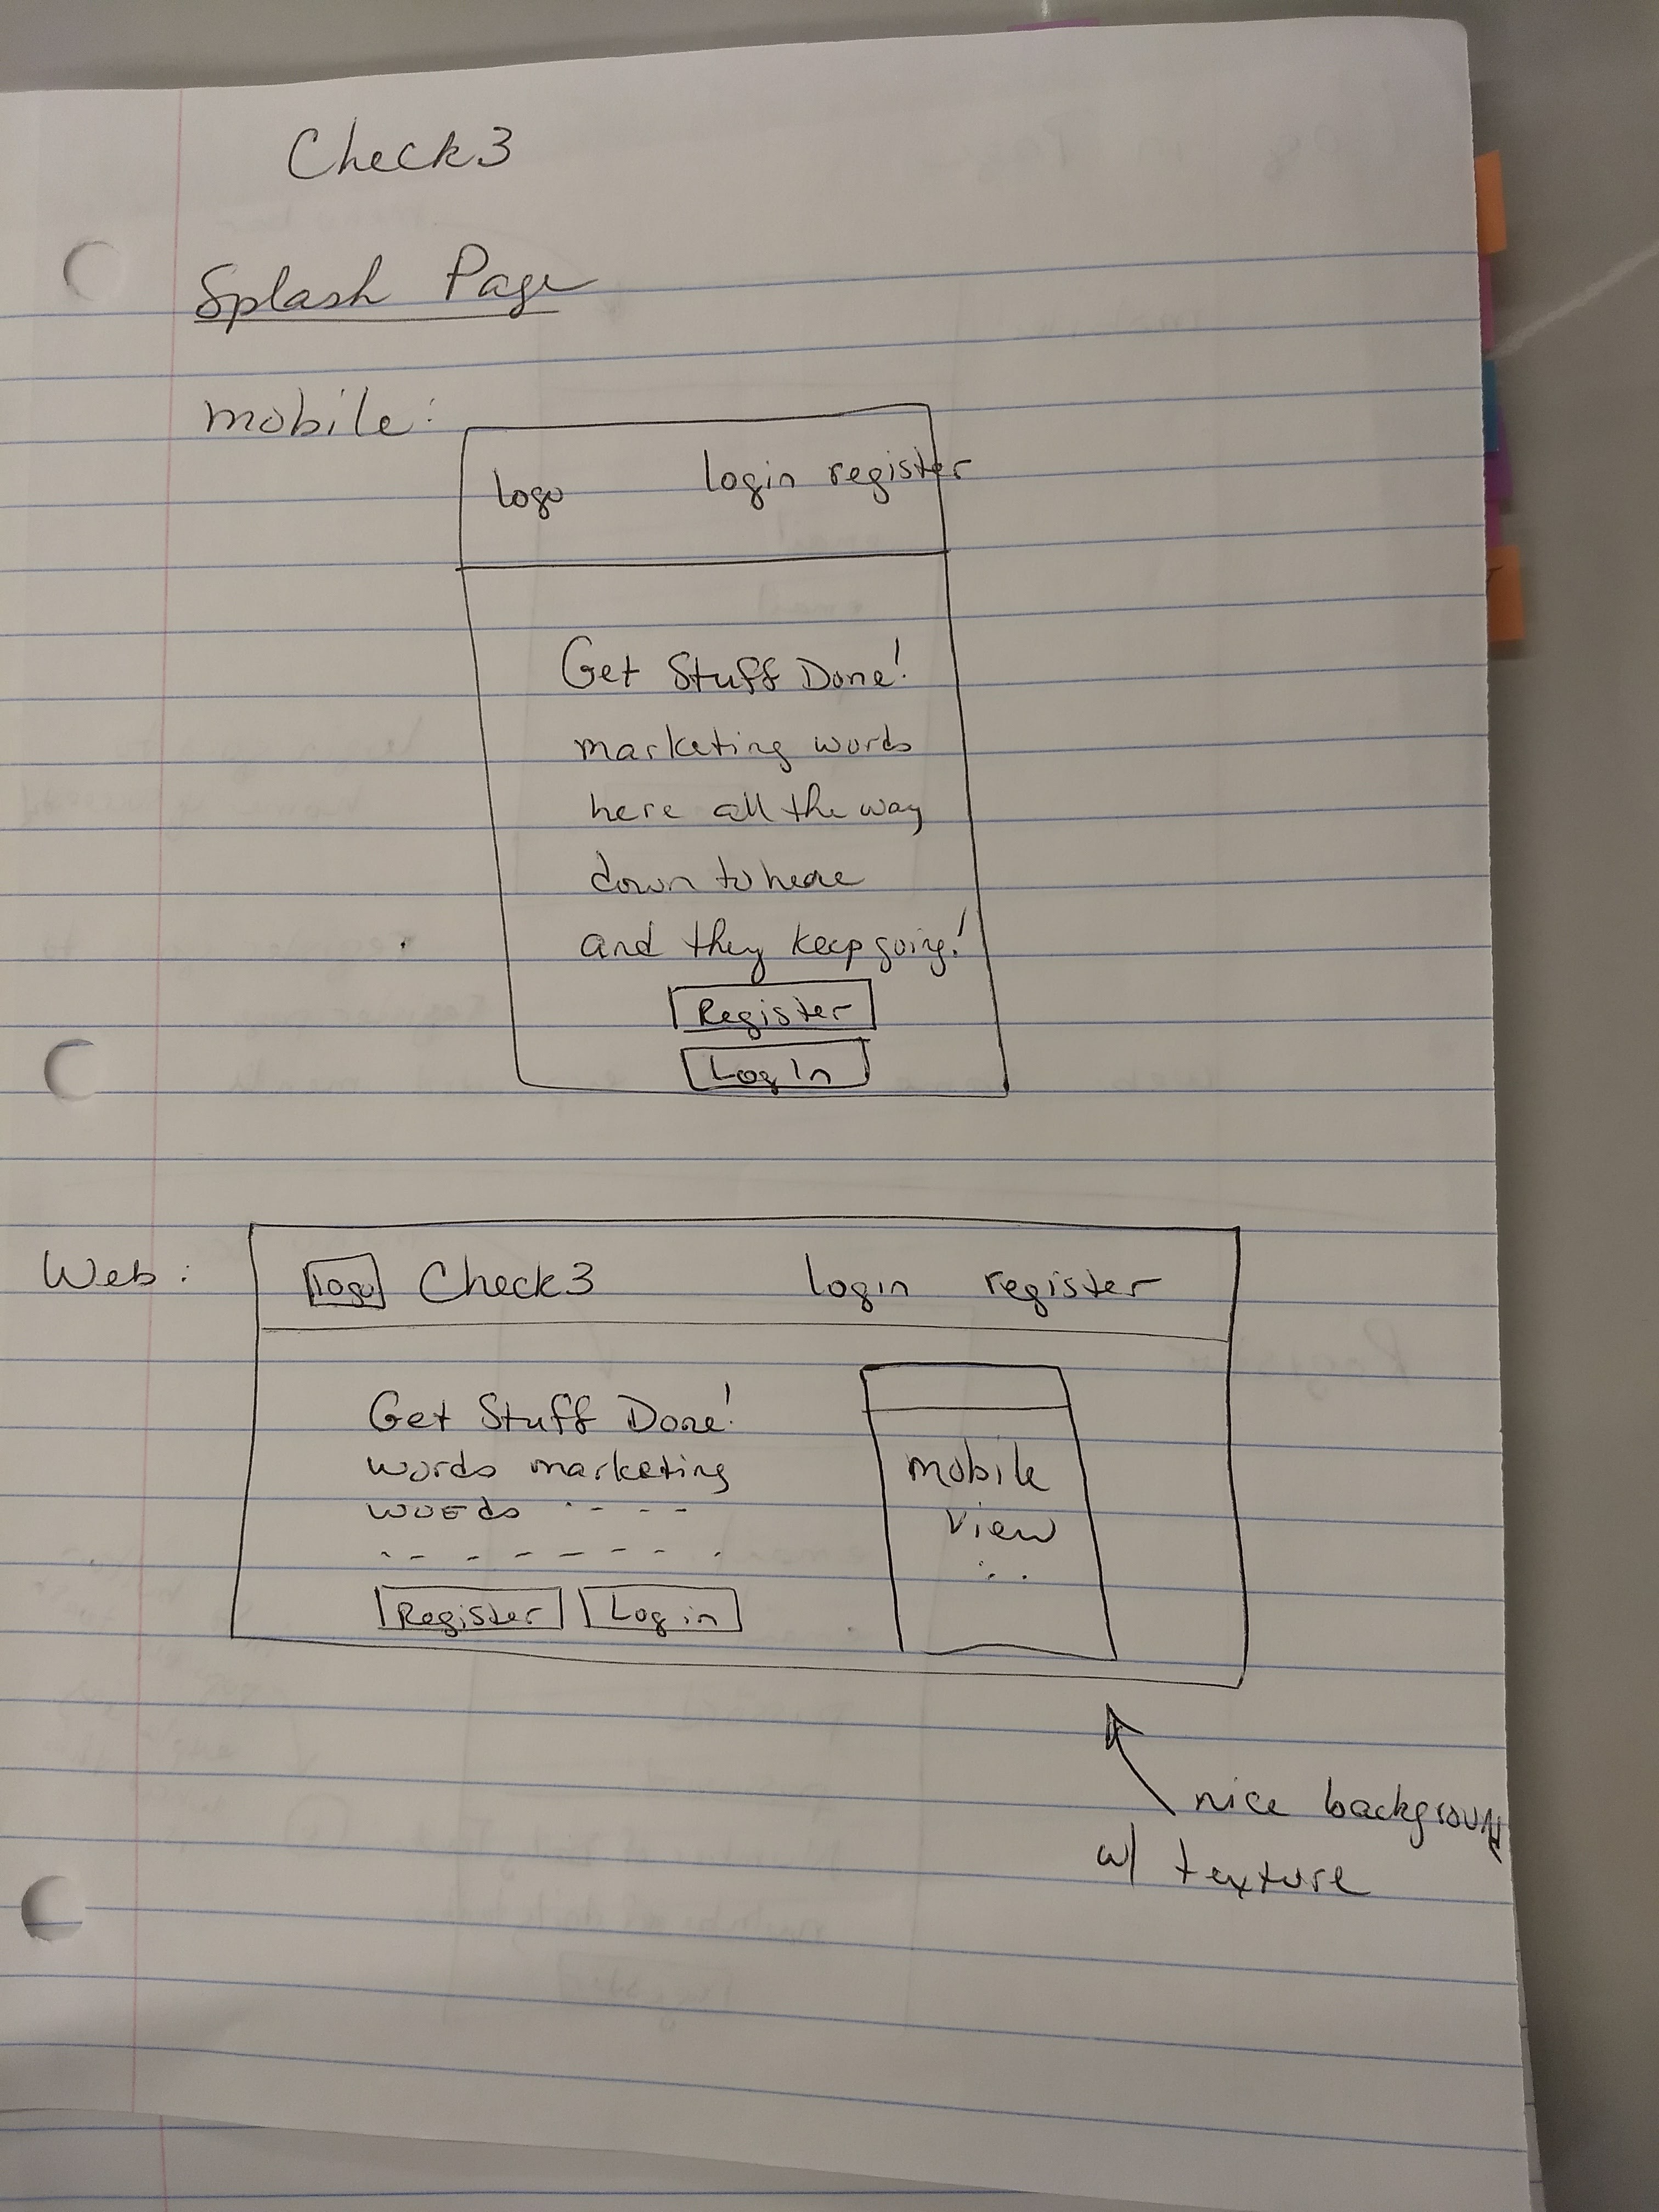 Check3
Splash Page
mobile:
logo login register
Get Stuff Done!
marketing words
here all the way
down to here
and they keep going!
Register
Log In
Web:
logo Check3 login register
Get Stuff Done!
words marketing
words
Register Log in
mobile
view
nice background
w/ texture